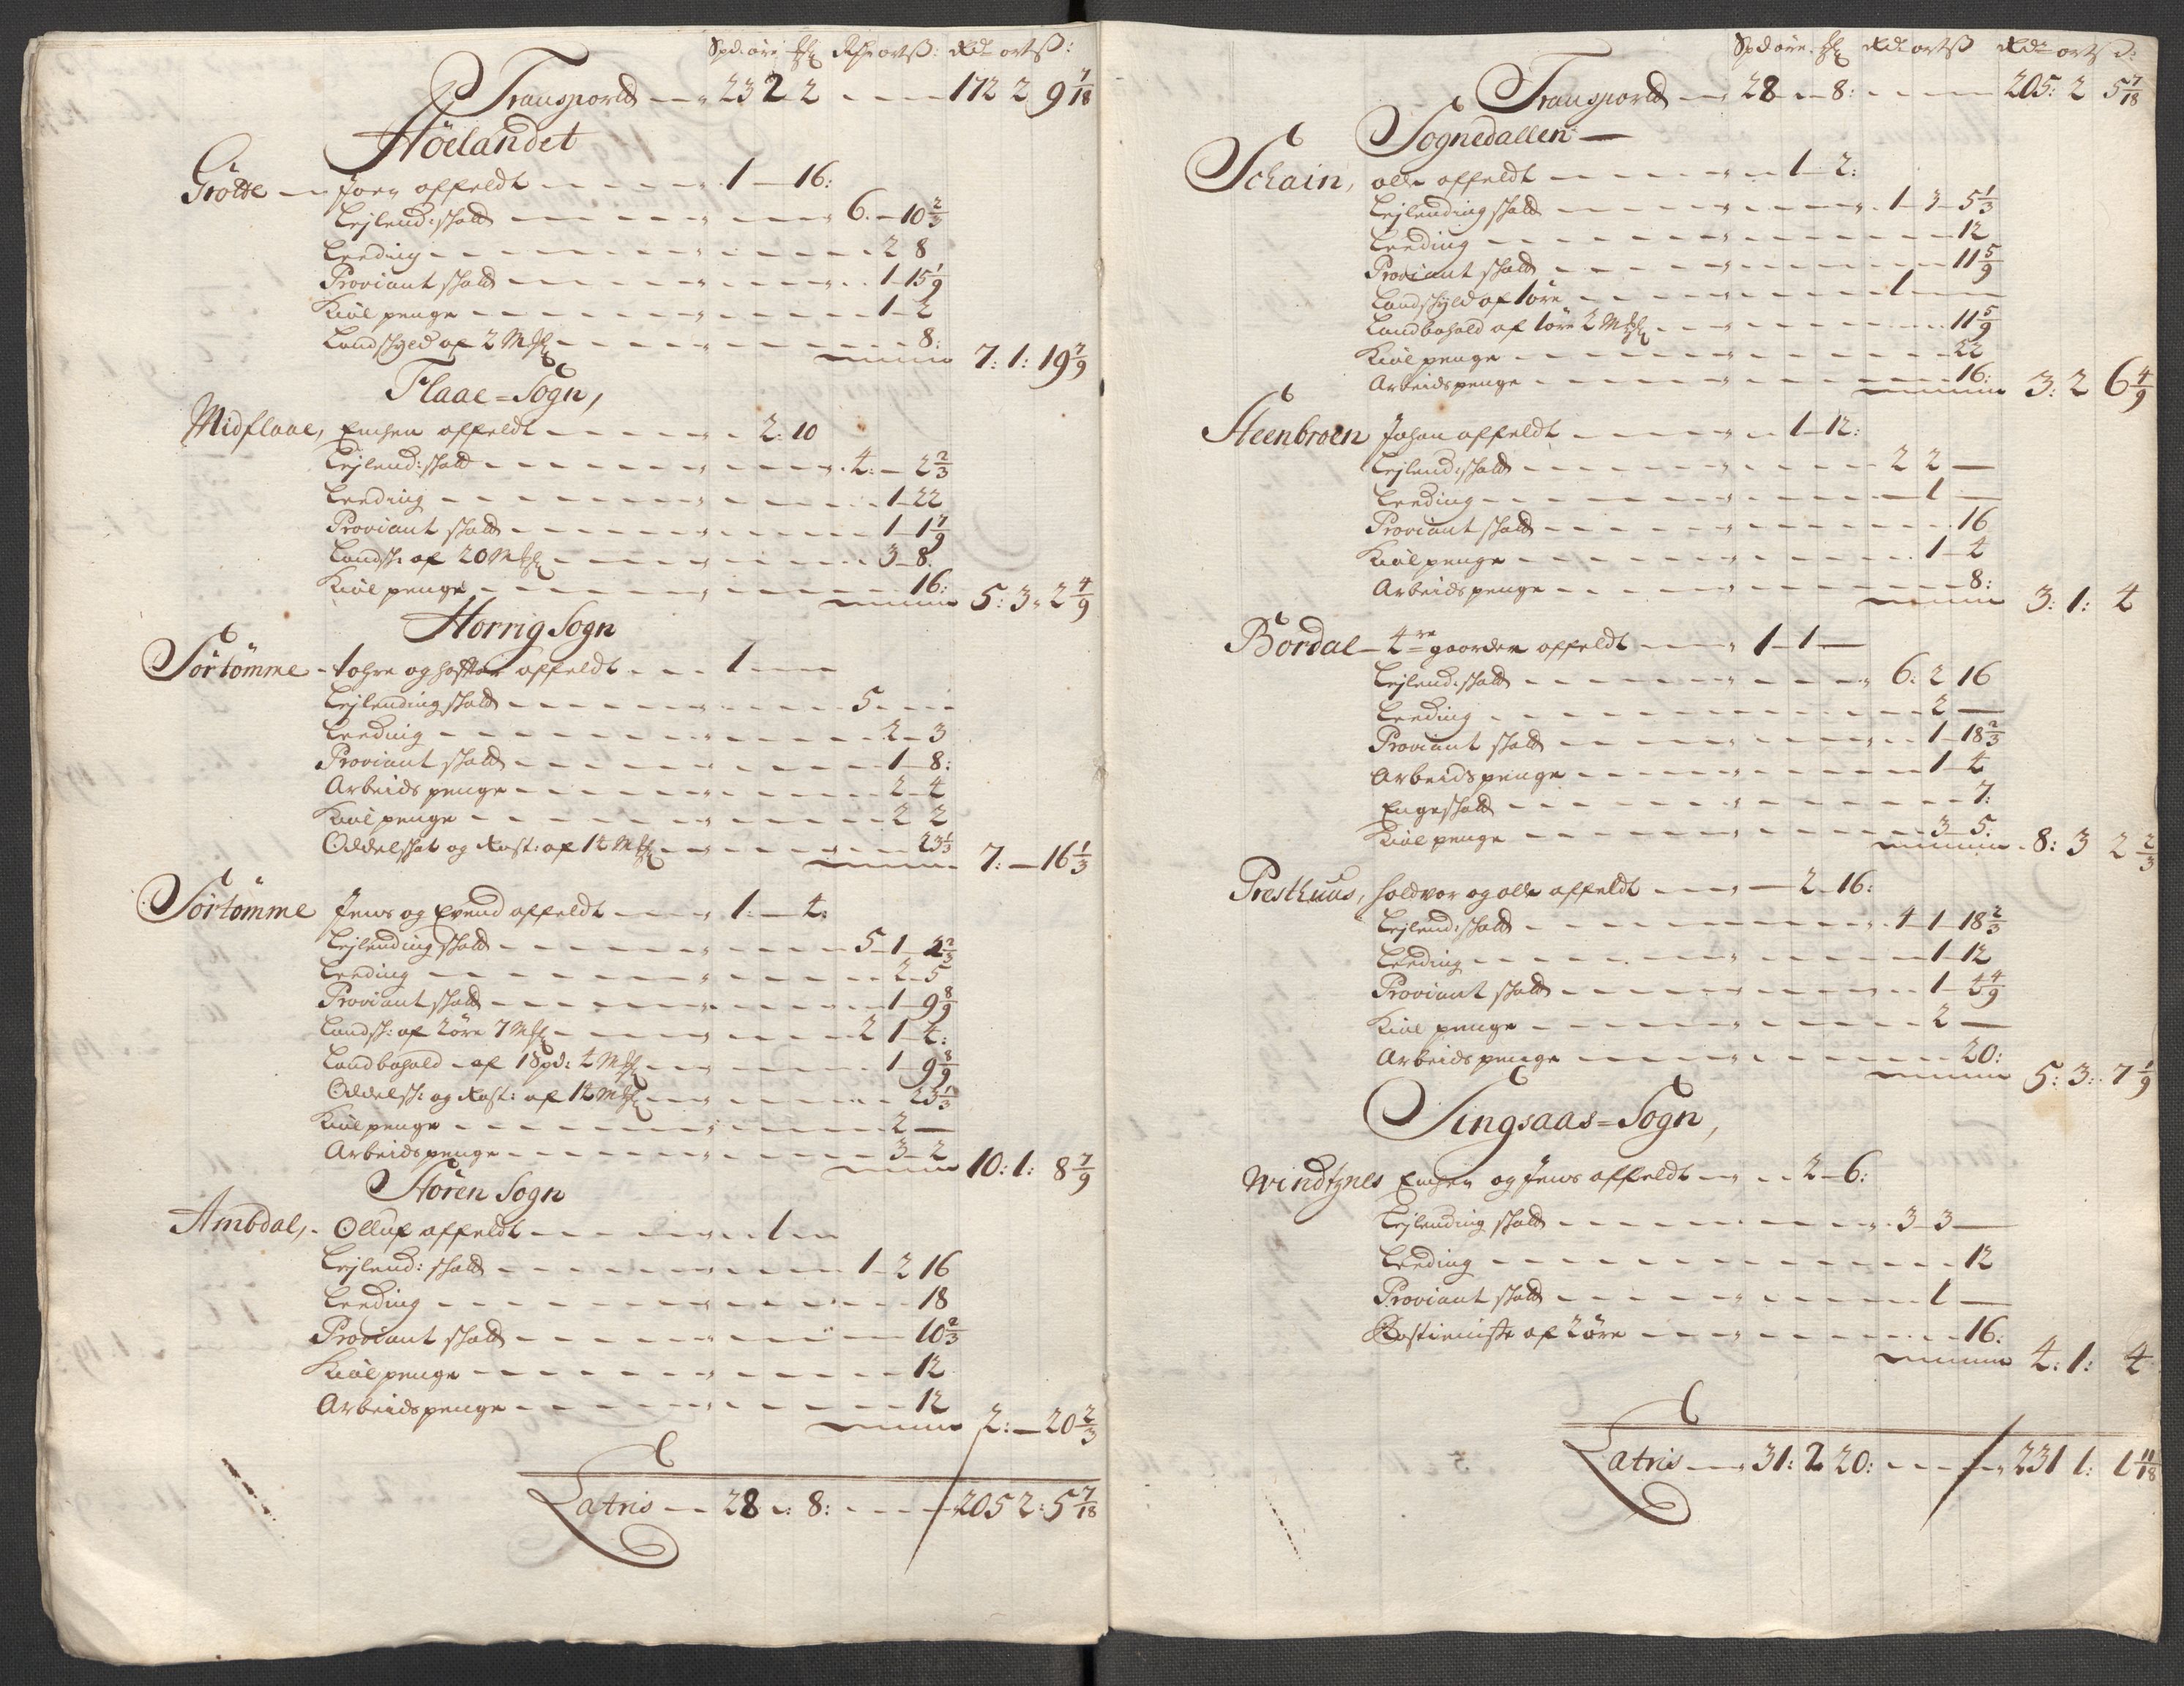 Spd: øre Mkl Rdr ort ß: Rdr ort ß:
Transporteris — 23 2 2 — 172 2 9 7/18
Höelandet
Grötte — Joen affeldt — 1 — 16:
Lejlend: skatt — 6. — 10 2/3
Leeding — 2 8
Proviant skatt — 1 15 1/9
Kiøl penge — 1 2
Landskyld af 2 Mkl — 8:
7: 1: 19 7/9
Flaae = Sogn,
Midflaae, affeldt — 2: 10
Lejlend: skatt — 4: — 2 2/3
Leeding — 1 22
Proviant skatt — 1 1 7/9
Landsk: af 20 Mkl — 3 8.
Kiøl penge — 16:
5: 3: 2 4/9
Horrig Sogn
Sörtömme — affeldt — 1 —
Lejlending skatt — 5 —
Leeding — 2 3
Proviant skatt — 1 8:
Arbeids penge — 2 4
Kiøl penge — 2 2
Oddelskat og Rost: af 14 Mkl — 23 1/3
7: — 16 1/3
Sörtömme Jens og Evend affeldt — 1: — 4:
Lejlending skatt — 5 1 2 2/3
Leeding — 2 5
Proviant skatt — 1 9 8/9
Landsk: af 2 øre 7 Mkl — 2 1 4:
Landbohold af 1 Spd: 4 Mkl — 1 9 8/9
Oddelsk: og Rost: af 14 Mkl — 23 1/3
Kiøl penge — 2 —
Arbeids penge — 3 2
10: 1: 8 7/9
Stören Sogn
Ambdal, Olluf affeldt — 1 —
Lejlend: skatt — 1 2 16
Leeding — 18
Proviant skatt — 10 2/3
Kiøl penge — 12
Arbeids penge — 12
2: — 20 2/3
Latris — 28 — 8: — 205 2: 5 7/18
Spd øre Mkl Rdr ort ß Rdr ort ß:
Transporteris — 28 — 8: — 205: 2 5 7/18
Sognedallen —
Schain, olle affeldt — 1 2:
Lejlending skatt — 1 3 5 1/3
Leeding — 12
Proviant skatt — 11 5/9
Landskyld af 1 øre — 1 —
Landbohold af 1 øre 2 Mkl — 11 5/9
Kiøl penge — 22
Arbeids penge — 16:
3: 2 6 4/9
Steenbroen Johan affeldt — 1 12:
Lejlend: skatt — 2 2 —
Leeding — 1 —
Proviant skatt — 16
Kiøl penge — 1 4
Arbeids penge — 8:
3: 1: 4
Bordal — 4re gaarder affeldt — 1 1 —
Lejlend: skatt — 6: 2 16
Leeding — 2 —
Proviant skatt — 1 18 2/3
Arbeids penge — 1 4
Engeskatt — 7:
Kiøl penge — 3 5.
8: 3 2 2/3
Presthuus, holdvor og olle affeldt — 2 16:
Lejlend: skatt — 4 1 18 2/3
Leeding — 1 12
Proviant skatt — 1 4 4/9
Kiøl penge — 2 —
Arbeids penge — 20:
5: 3: 7 1/9
Singsaas = Sogn,
Windtynes og Jens affeldt — 2 6:
Lejlending skatt — 3 3 —
Leeding — 12
Proviant skatt — 1 —
Rostieniste af 2 øre — 16:
4: 1: 4
Latris — 31: 2 20: — 231 1: 1 11/18